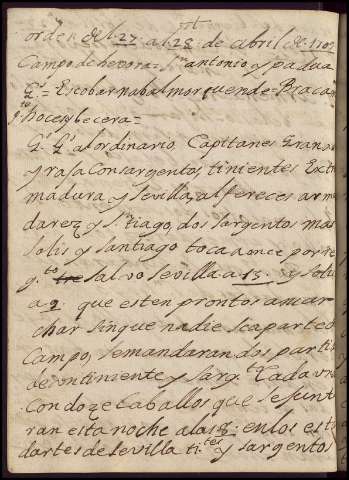 orden del 27 al 28 de abril de
Campo de hevora = Sn antonio y padua
Gs = Escobar nabal morquende = Braca
hoces y becera =
Gs Gs al ordinario Capitanes Grana
y rasa Con sargentos, tinientes Extre
madura y Sevilla, alfereces arm
darez y s.tiago, dos sargentos mas
solis y santiago toca a once por re
g.to salvo Sevilla a 15 y solis
a 9 que esten prontos a mar
char sin que nadie se aparte
Campo, Semandaran dos parti
de con tiniente y sarg.to Cada un
Con doze Caballos que se junt
ran esta noche a las 8 en los est
dartes de sevilla ti.tes y sargentos